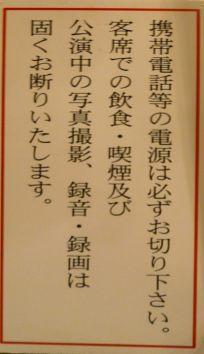 携帯電話等の電源は必ずお切り下さい。
客席での飲食・喫煙及び
公演中の写真撮影、録音・録画は
固くお断りいたします。